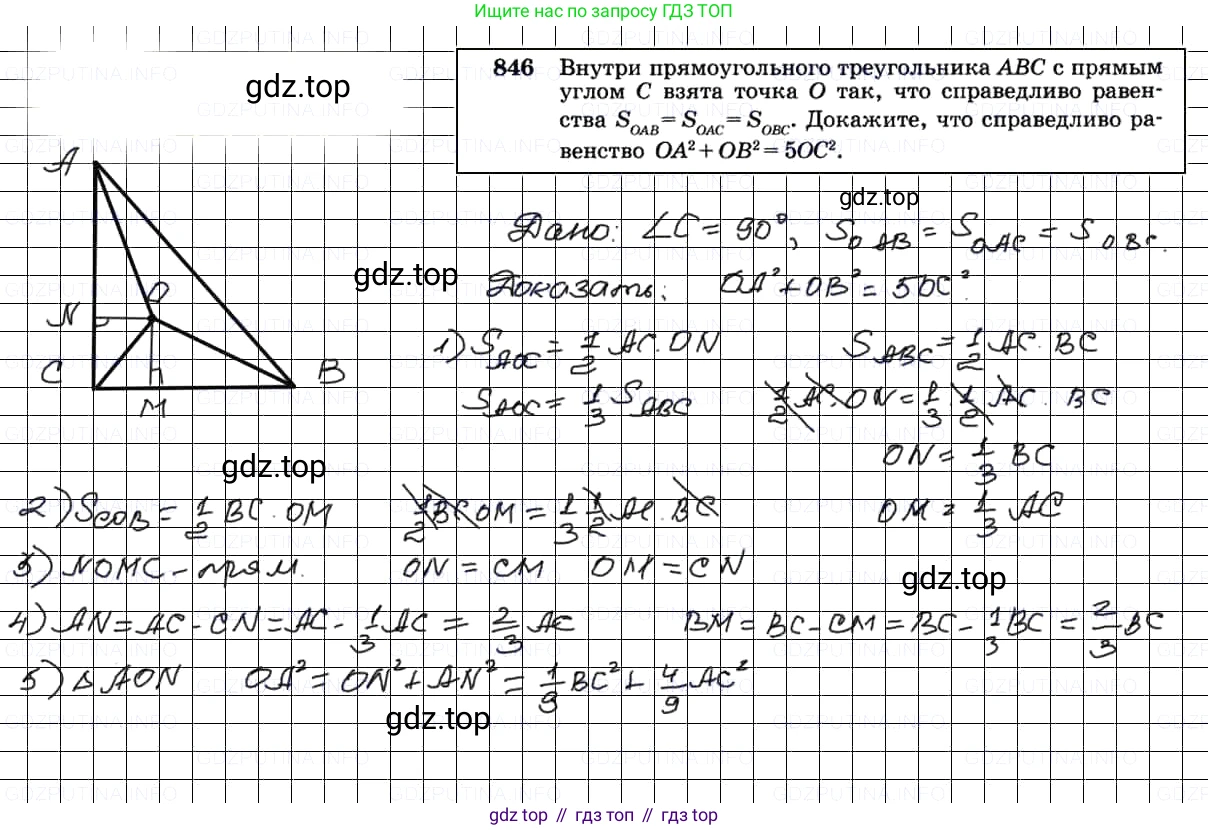 Ищите нас по запросу ГДЗ ТОП
gdz.top
846 Внутри прямоугольного треугольника ABC с прямым
углом C взята точка O так, что справедливо равен-
ства S_OAB = S_OAC = S_OBC. Докажите, что справедливо ра-
венство OA² + OB² = 5OC².
gdz.top
A
Дано: ∠C = 90°, S_OAB = S_OAC = S_OBC.
gdz.top
Доказать: OA² + OB² = 5OC².
O
N
C
B
M
1) S_AOC = 1/2 AC · ON S_ABC = 1/2 AC · BC
S_AOC = 1/3 S_ABC 1/2 AC · ON = 1/3 · 1/2 AC · BC
ON = 1/3 BC
gdz.top
2) S_COB = 1/2 BC · OM 1/2 BC OM = 1/3 1/2 AC · BC OM = 1/3 AC
3) NOMC - прям. ON = CM OM = CN
gdz.top
4) AN = AC - CN = AC - 1/3 AC = 2/3 AC BM = BC - CM = BC - 1/3 BC = 2/3 BC
5) △ AON OA² = ON² + AN² = 1/9 BC² + 4/9 AC²
gdz.top
GDZPUTINA.INFO
gdz.top // гдз топ // gdz top